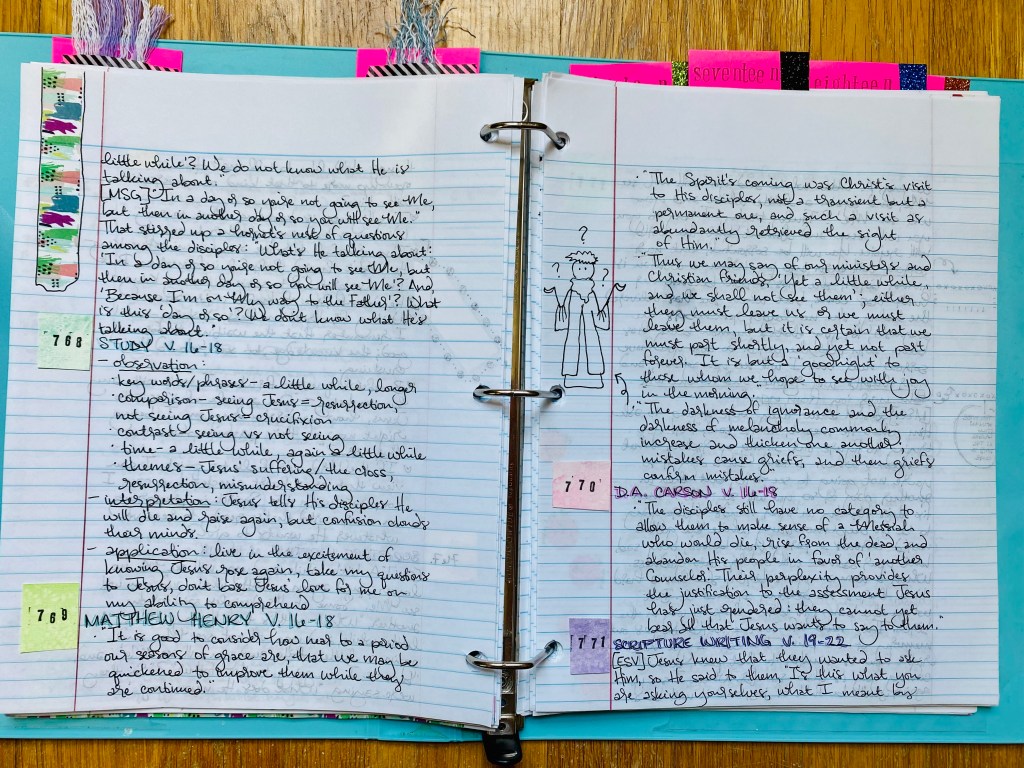 seventeen
eighteen
little while'? We do not know what He is
talking about."
[MSG] "In a day or so you're not going to see Me,
but then in another day or so you will see Me."
That stirred up a hornet's nest of questions
among the disciples: "What's He talking about:
'In a day or so you're not going to see Me, but
then in another day or so you will see Me'? And,
'Because I'm on My way to the Father'? What
is this 'day or so'? We don't know what He's
talking about."
768
STUDY V. 16-18
- observation:
· key words/phrases - a little while, longer
· comparison - seeing Jesus = resurrection,
not seeing Jesus = crucifixion
· contrast - seeing vs not seeing
· time - a little while, again a little while
· themes - Jesus' suffering/the cross,
resurrection, misunderstanding
- interpretation: Jesus tells His disciples He
will die and raise again, but confusion clouds
their minds.
- application: live in the excitement of
knowing Jesus rose again, take my questions
to Jesus, don't base Jesus' love for me on
my ability to comprehend
769
MATTHEW HENRY V. 16-18
· "It is good to consider how near to a period
our seasons of grace are, that we may be
quickened to improve them while they
are continued."
· "The Spirit's coming was Christ's visit
to His disciples, not a transient but a
permanent one, and such a visit as
abundantly retrieved the sight
of Him."
? ? ?
· "Thus we may say of our ministers and
Christian friends, 'Yet a little while,
and we shall not see them'; either
they must leave us or we must
leave them, but it is certain that we
must part shortly, and yet not part
forever. It is but a 'goodnight' to
those whom we hope to see with joy
in the morning."
· "The darkness of ignorance and the
darkness of melancholy commonly
increase and thicken one another;
mistakes cause griefs, and then griefs
confirm mistakes."
770
D.A. CARSON V. 16-18
· "The disciples still have no category to
allow them to make sense of a Messiah
who would die, rise from the dead, and
abandon His people in favor of 'another
Counselor.' Their perplexity provides
the justification to the assessment Jesus
has just rendered: they cannot yet
bear all that Jesus wants to say to them."
771
SCRIPTURE WRITING V. 19-22
[ESV] Jesus knew that they wanted to ask
Him, so He said to them, "Is this what you
are asking yourselves, what I meant by